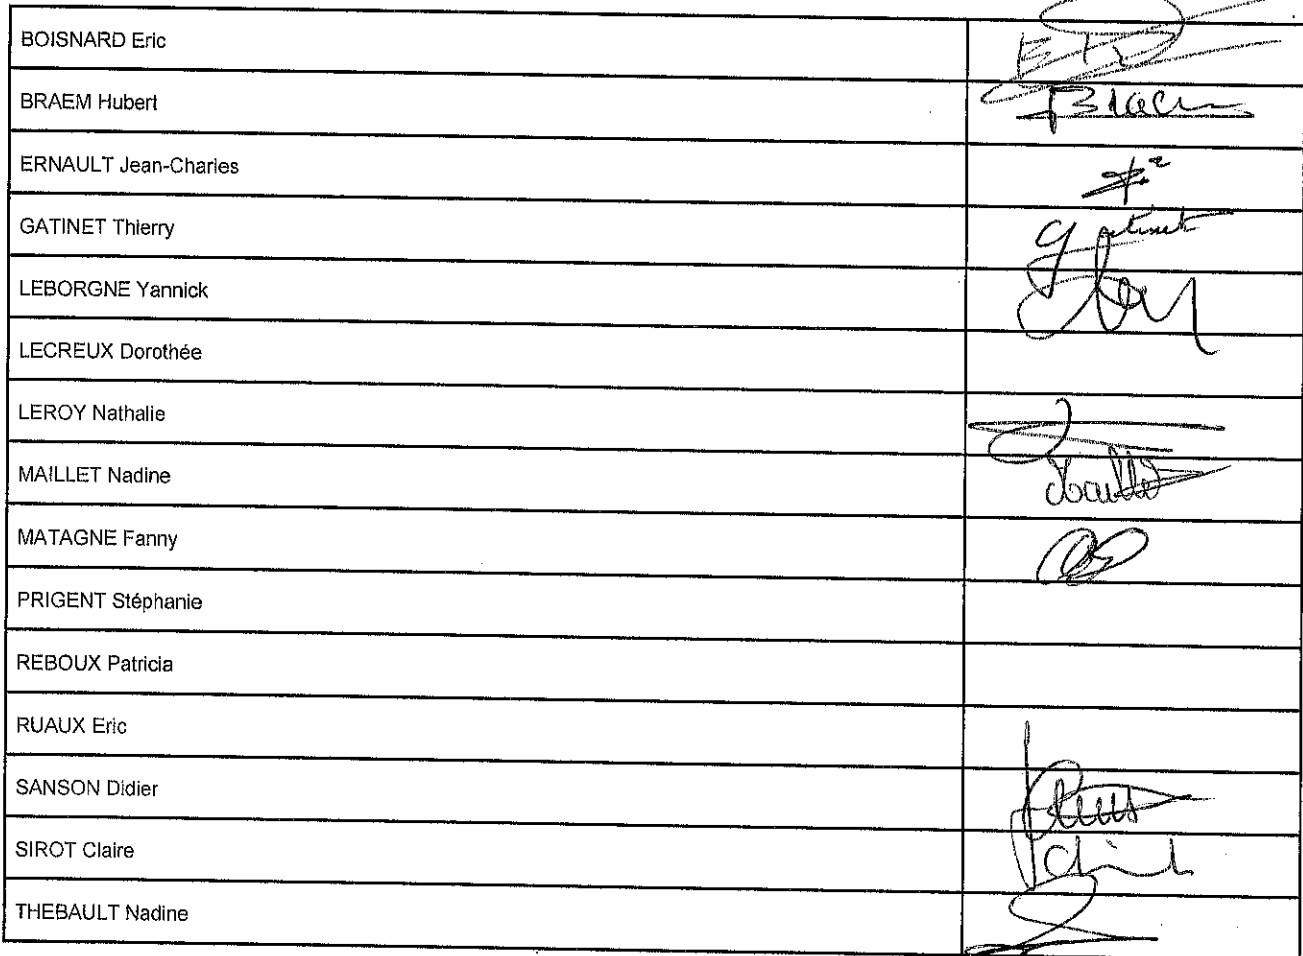 BOISNARD Eric
BRAEM Hubert Braem
ERNAULT Jean-Charles
GATINET Thierry Gatinet
LEBORGNE Yannick
LECREUX Dorothée
LEROY Nathalie
MAILLET Nadine
MATAGNE Fanny
PRIGENT Stéphanie
REBOUX Patricia
RUAUX Eric
SANSON Didier
SIROT Claire
THEBAULT Nadine